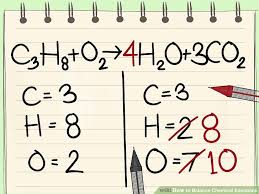 C₃H₈+O₂→4H₂O+3CO₂
C=3 C=3
H=8 H=2 8
O=2 O=7 10
wikiHow to Balance Chemical Equations